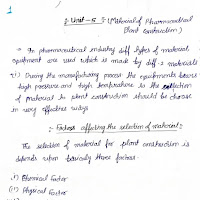 1
:- Unit - 5 :- (Material of Pharmaceutical
Plant construction)
→ In pharmaceutical industry diff types of material
equipment are used which is made by diff-2 materials
During the manufacturing process the equipments bears
high pressure and high temperature so the selection
of material to plant construction should be choose
in very effective ways
:- Factors affecting the selection of material :-
The selection of material for plant construction is
depends upon basically three factors.
(i) Chemical Factor
(ii) Physical Factor